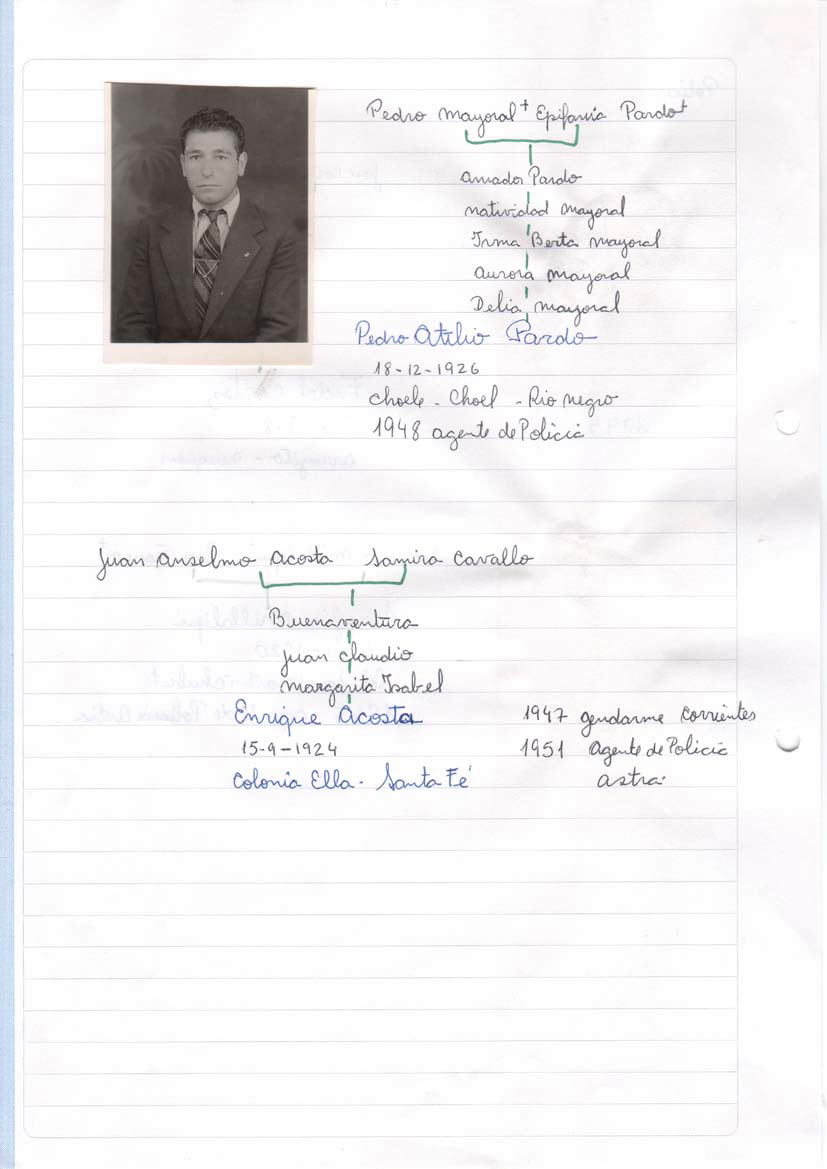 Pedro Mayoral + Epifanía Pardo +
Amador Pardo
Natividad Mayoral
Irma Berta Mayoral
Aurora Mayoral
Delia Mayoral
Pedro Atilio Pardo
18-12-1926
Choele - Choel - Rio Negro
1948 agente de Policia
Juan Anselmo Acosta Samira Cavallo
Buenaventura
Juan Claudio
Margarita Isabel
Enrique Acosta
15-9-1924
Colonia Ella - Santa Fé
1947 gendarme Corrientes
1951 Agente de Policia
Astra.